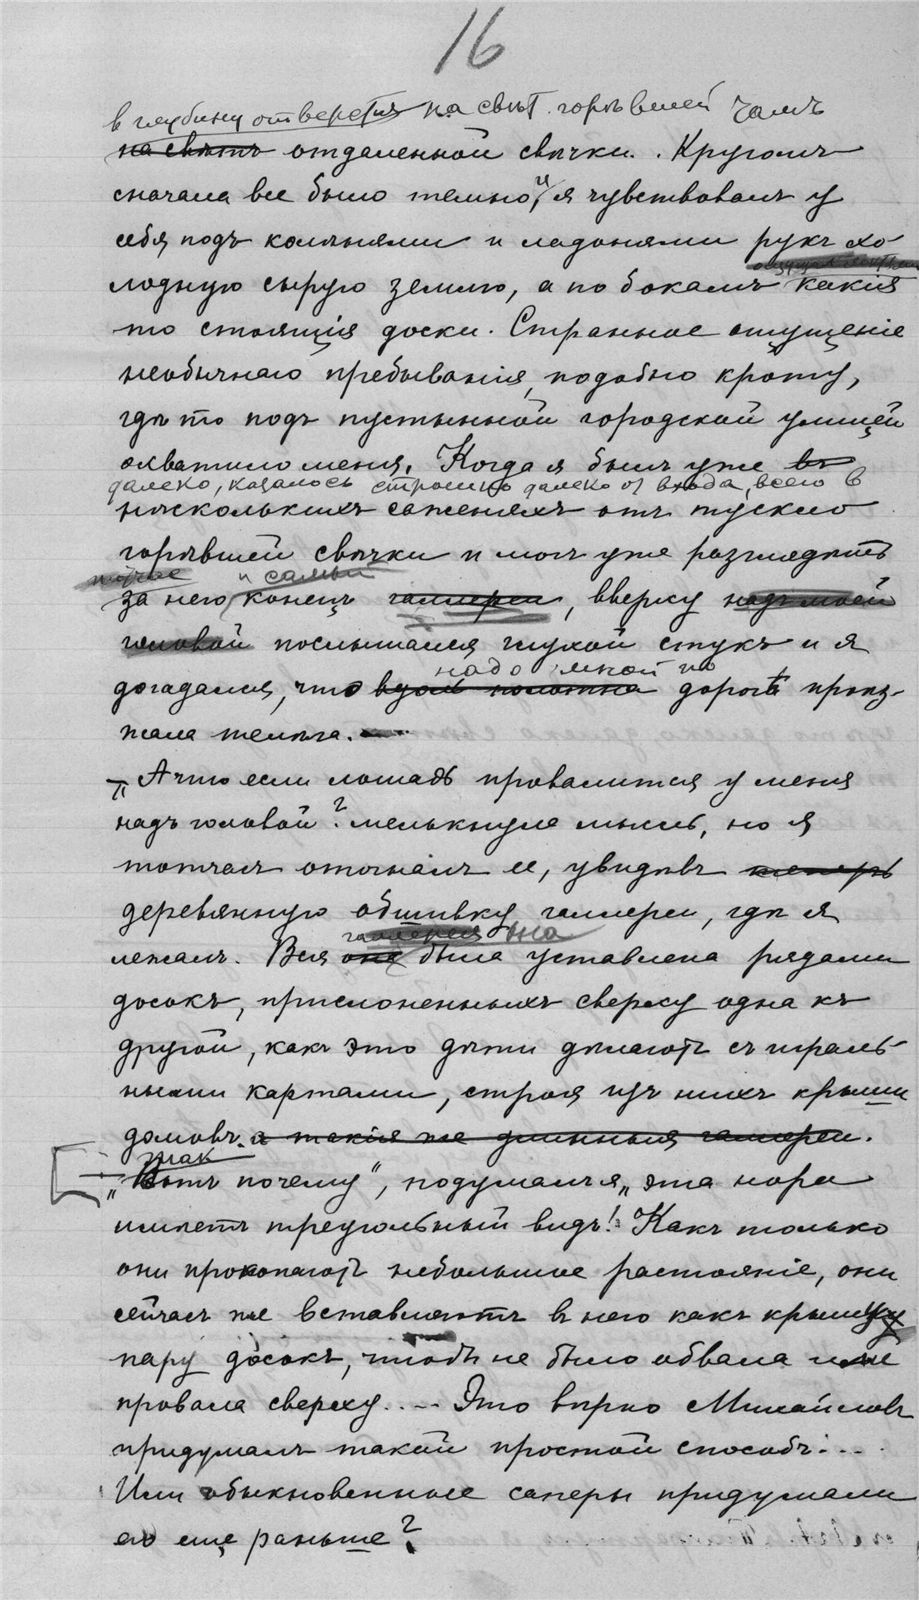 16
в глубину отверстія на свѣт горѣвшей тамъ
на свѣтъ отдаленной свѣчки. Кругомъ
сначала все было темно, и я чувствовалъ у
себя подъ колѣнями и ладонями рукъ хо-
лодную сырую землю, а по бокамъ какія
то стоящія доски. Странное ощущеніе
необычнаго пребыванія, подобно кроту,
гдѣ то подъ пустынной городской улицей
охватило меня. Когда я былъ уже въ
далеко, казалось страшно далеко от входа, всего в
нѣсколькихъ саженяхъ отъ тускло
горѣвшей свѣчки и могъ уже разглядѣть
и самый
за нею конецъ галлереи, вверху надъ моей
головой послышался глухой стукъ и я
надо мной по
догадался, что вдоль полотна дорогѣ проѣз-
жала телѣга.
„А что если лошадь провалится у меня
надъ головой? мелькнула мысль, но я
тотчасъ отогналъ ее, увидѣвъ теперь
деревянную обшивку галлереи, гдѣ я
галлерея она
лежалъ. Вся она была уставлена рядами
досокъ, прислоненныхъ сверху одна къ
другой, какъ это дѣти дѣлаютъ съ играль-
ными картами, строя изъ нихъ крыши
домовъ. и такія же длинныя галлереи.
Так
„Вотъ почему", подумалъ я „эта нора
имѣетъ треугольный видъ! Какъ только
они прокопаютъ небольшое растояніе, они
сейчасъ же вставляютъ в него какъ крышу
пару досокъ, чтобъ не было обвала или
провала сверху.... Это вѣрно Михайловъ
придумалъ такой простой способъ....
Или обыкновенные саперы придумали
его еще раньше?